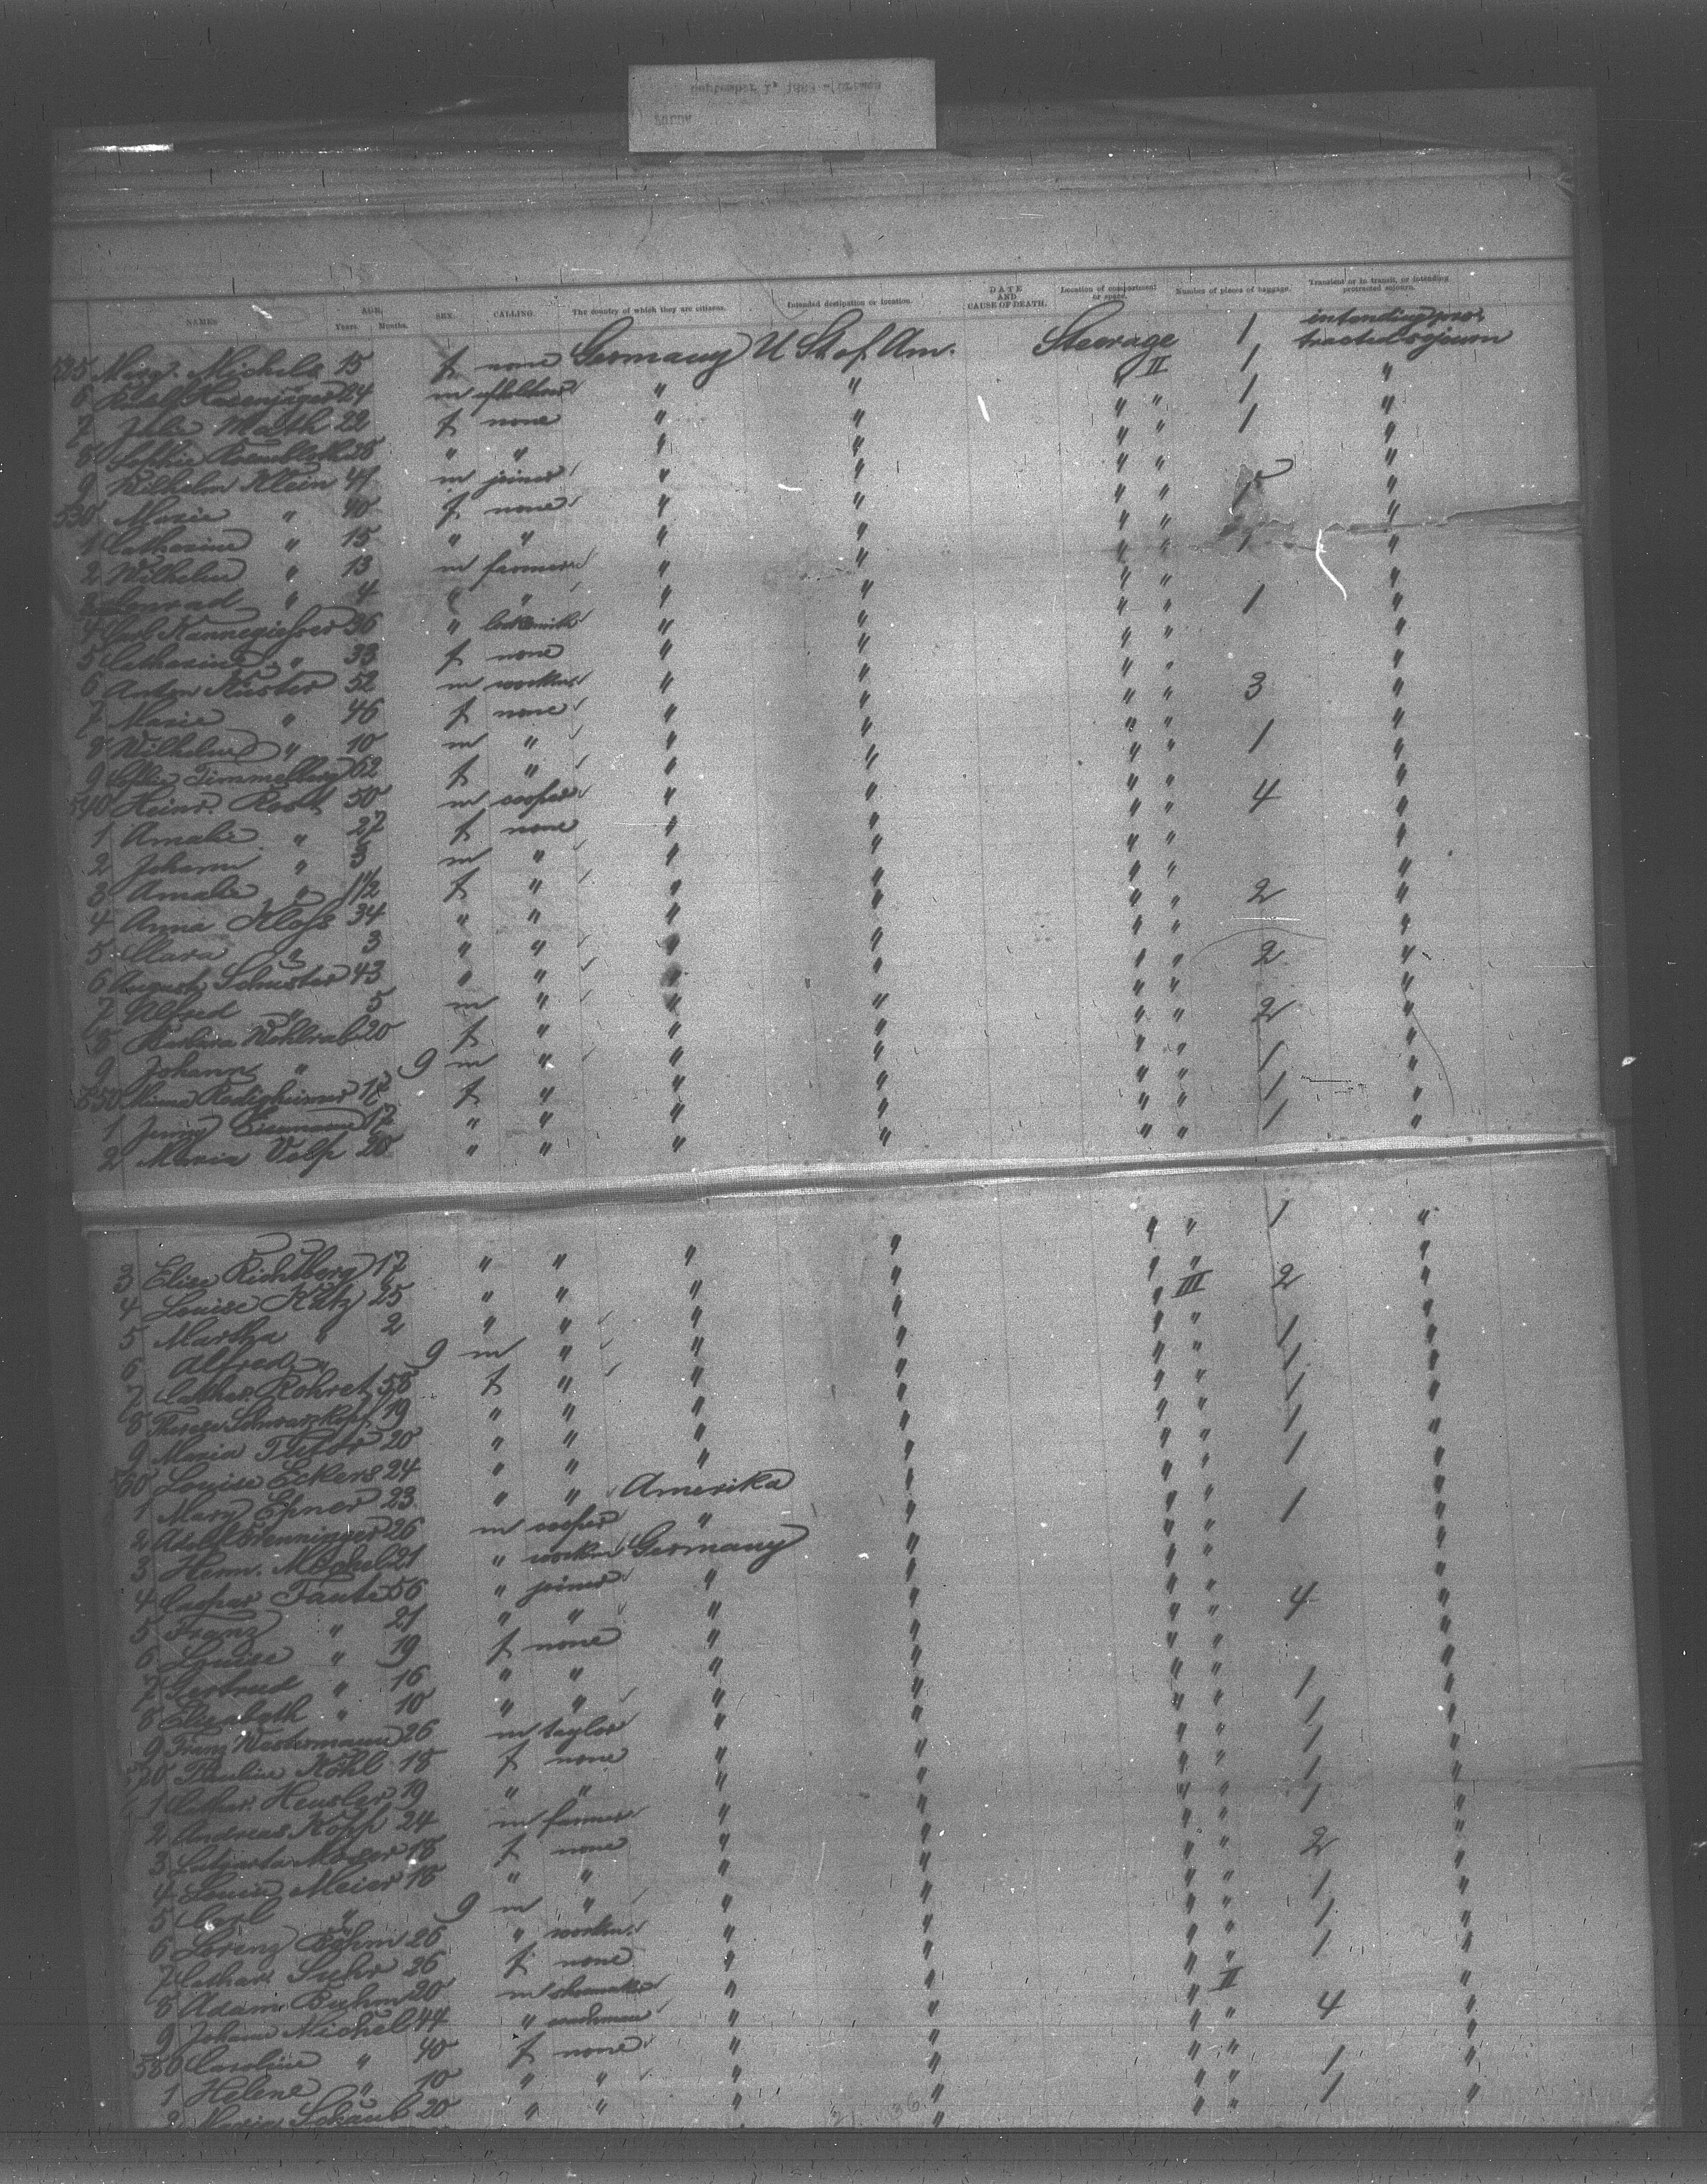 September 1, 1883 afternoon
FULDA
NAMES AGE. Years. Months. SEX. CALLING. The country of which they are citizens. Intended destination or location. DATE AND CAUSE OF DEATH. Location of compartment or space. Number of pieces of baggage. Transient or in transit, or intending protracted sojourn.
525 Marg. Michels 15 f none Germany U St of Am. Steerage 1 intending protracted sojourn
6 Hasenjäger 24 m " " " II 1 "
7 Julie Wäth 22 f none " " " " 1 "
8 Sophie 25 " " " " " " 1 "
9 Wilhelm Klein 47 m joiner " " " " "
530 Marie " 40 f none " " " " "
1 Catharine " 15 " " " " " " "
2 Wilhelm " 13 m farmer " " " " "
3 Conrad " 4 " " " " " " "
4 Carl Kannegiesser 36 " locksmith " " " " 1 "
5 Catharine " 33 f none " " " " "
6 Anton Küster 52 m worker " " " " 3 "
7 Marie " 46 f none " " " " "
8 Wilhelm " 10 m " " " " " "
9 Timmelberg 62 f " " " " " 1 "
540 Heinr. Roth 50 m cooper " " " " 4 "
1 Amalie " 27 f none " " " " "
2 Johann " 5 m " " " " " "
3 Amalie " 1 1/2 f " " " " " "
4 Anna Kloss 34 " " " " " " 2 "
5 Clara " 3 " " " " " " "
6 August Schuster 43 " " " " " " 2 "
7 Alfred " 5 m " " " " " "
8 Barbara Wohlrab 20 f " " " " " 2 "
9 Johann " 9 m " " " " " "
550 Minna Redigheimer 17 f " " " " " 1 "
1 Jenny Eisemann 17 " " " " " " 1 "
2 Maria Volp 20 " " " " " " 1 "
3 Elise Richtberg 17 " " " " " " 1 "
4 Louise Katz 25 " " " " " III 2 "
5 Martha " 2 " " " " " " "
6 Alfred " 9 m " " " " " "
7 Cathar. Rohret 58 f " " " " " 1 "
8 Therese Schwarzkopf 19 " " " " " " 1 "
9 Maria 20 " " " " " " 1 "
560 Louise Eckers 24 " " " " " " 1 "
1 Mary Epner 23 " " Amerika " " " 1 "
2 Adolf 26 m cooper " " " " "
3 Herm. Möckel 21 " worker Germany " " " 1 "
4 Caspar Faute 56 " joiner " " " " "
5 Franz " 21 " " " " " " "
6 Louise " 19 f none " " " " 4 "
7 Gertrud " 16 " " " " " " "
8 Elisabeth " 10 " " " " " " "
9 Franz Westermann 26 m taylor " " " " 1 "
570 Pauline Köhl 18 f none " " " " 1 "
1 Cathar. Heusler 19 " " " " " " 1 "
2 Andreas Köpp 24 m farmer " " " " 1 "
3 Moser 18 f none " " " " 1 "
4 Louise Meier 18 " " " " " " 2 "
5 Carl " 9 m " " " " " "
6 Lorenz Böhm 26 " worker " " " " 1 "
7 Cathar. Suhr 26 f none " " " " 1 "
8 Adam Buhm 20 m shoemaker " " " II 1 "
9 Johann Michel 44 " coachman " " " " "
580 Caroline " 40 f none " " " " 4 "
1 Helene " 10 " " " " " " "
2 Maria Schaub 20 " " " " " " 1 "